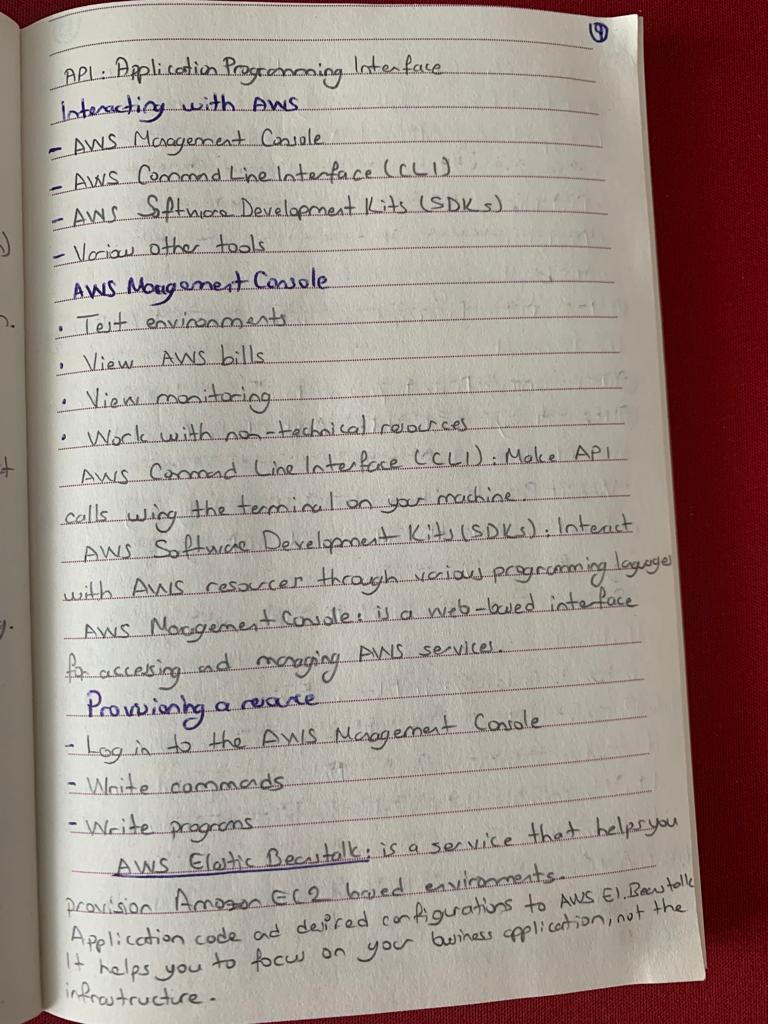 19
API: Application Programming Interface
Interacting with AWS
- AWS Management Console
- AWS Command Line Interface (CLI)
- AWS Software Development Kits (SDKs)
- Various other tools
AWS Management Console
• Test environments
• View AWS bills
• View monitoring
• Work with non-technical resources
AWS Command Line Interface (CLI): Make API
calls using the terminal on your machine.
AWS Software Development Kits (SDKs): Interact
with AWS resources through various programming laguages
AWS Management Console: is a web-based interface
for accessing and managing AWS services.
Provisioning a resource
- Log in to the AWS Management Console
- Write commands
- Write programs
AWS Elastic Beanstalk: is a service that helps you
provision Amazon EC2 based environments.
Application code and desired configurations to AWS El. Beanstalk
It helps you to focus on your business application, not the
infrastructure.